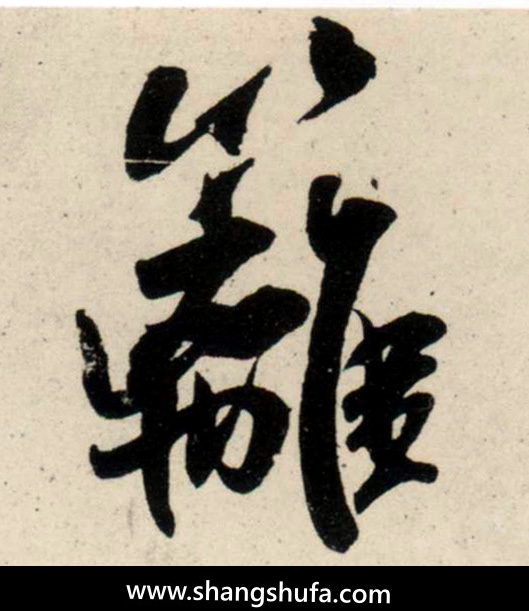 籬
www.shangshufa.com